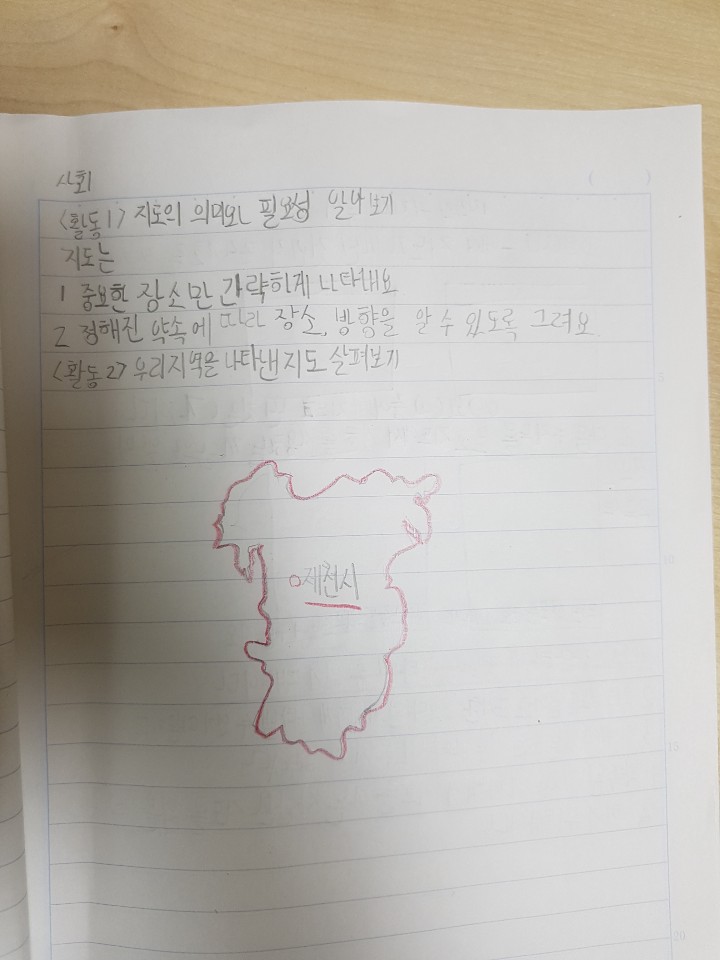 사회
<활동1> 지도의 의미와 필요성 알아보기
지도는
1 중요한 장소만 간략하게 나타내요
2 정해진 약속에 따라 장소, 방향을 알 수 있도록 그려요
<활동2> 우리지역을 나타낸 지도 살펴보기
제천시